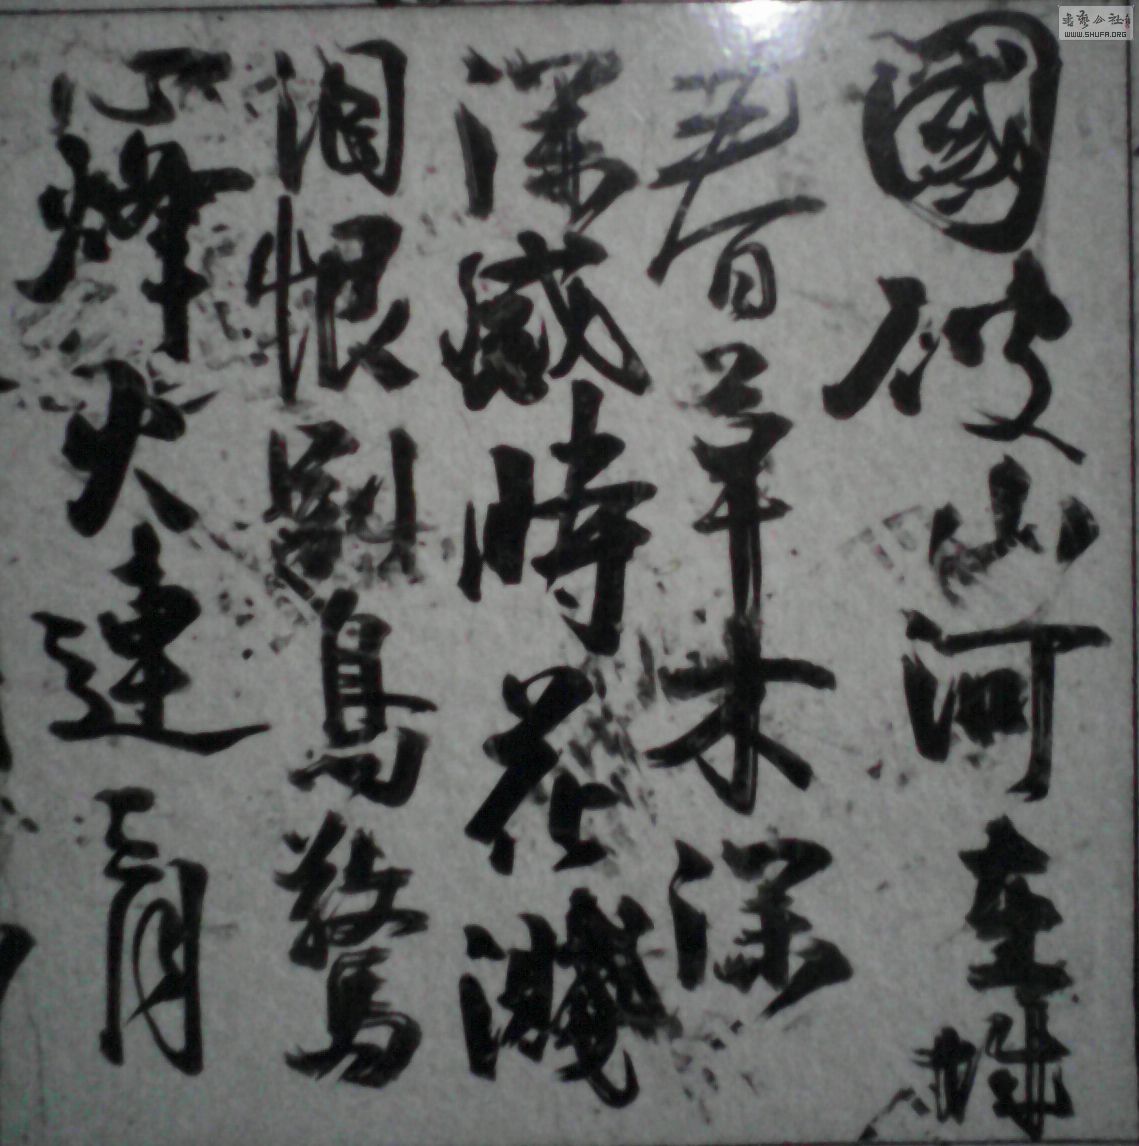 國破山河在城
春草木深
深感時花濺
泪恨别鳥驚
心烽火連三月
書藝公社
WWW.SHUFA.ORG